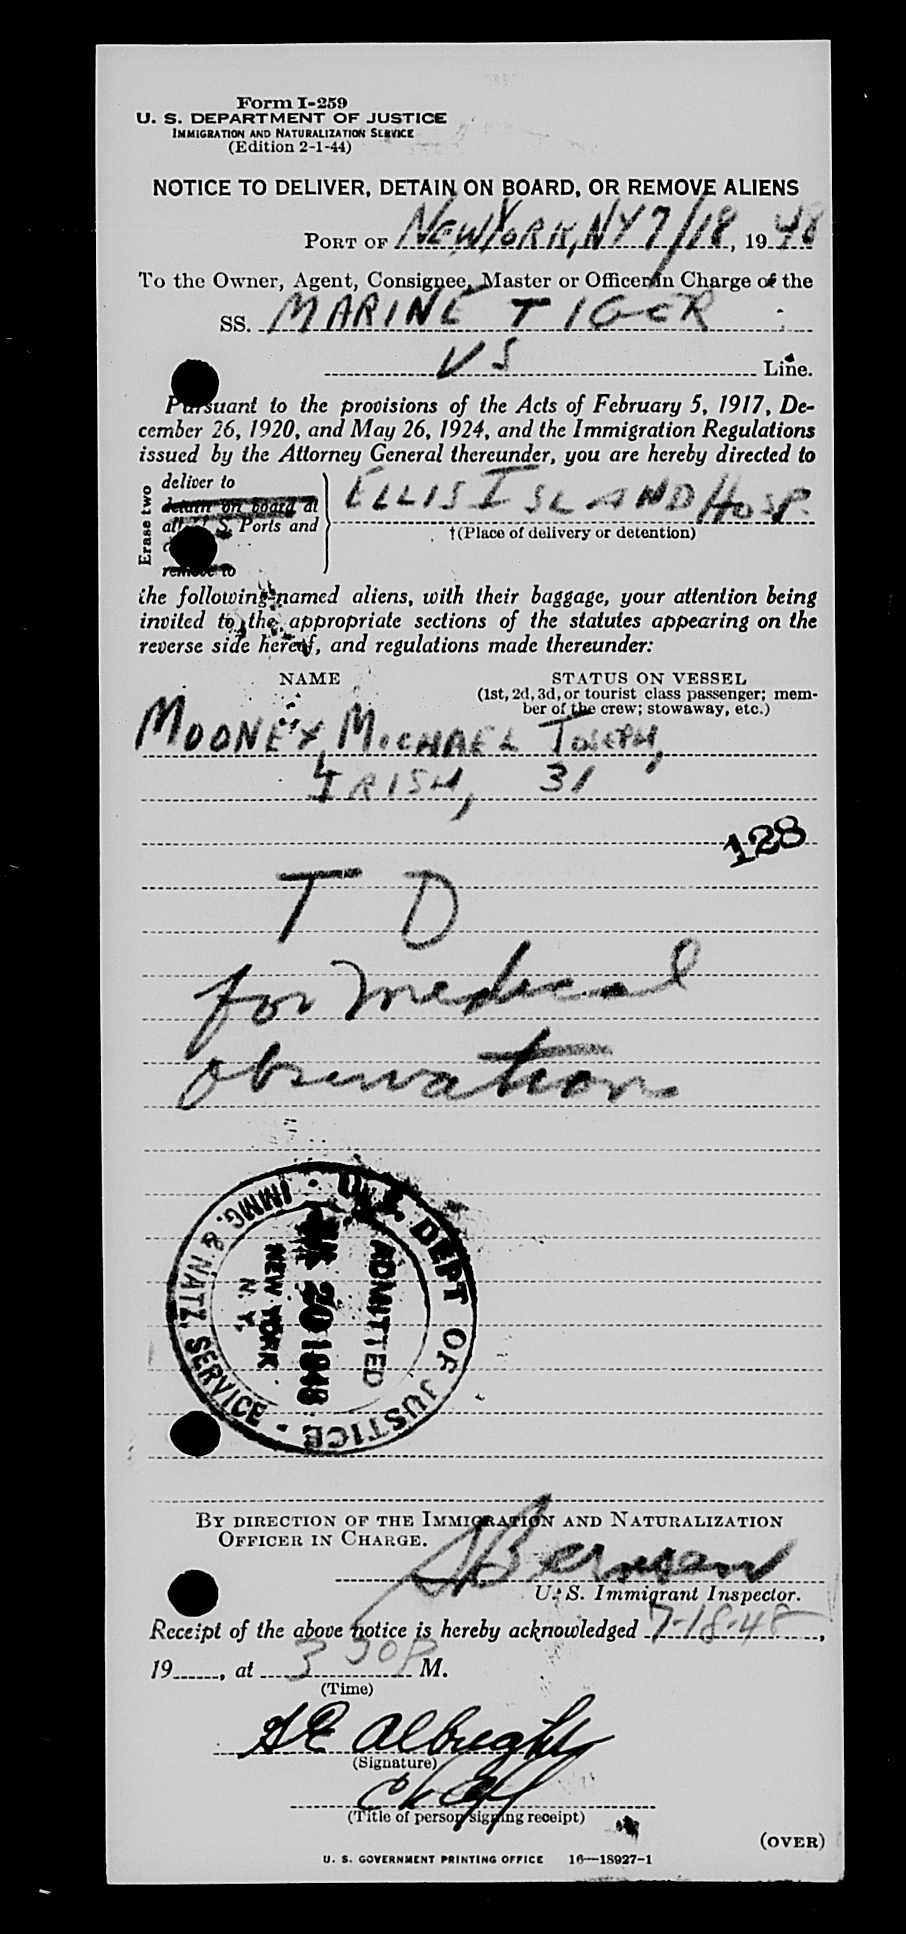 Form I-259
U. S. DEPARTMENT OF JUSTICE
IMMIGRATION AND NATURALIZATION SERVICE
(Edition 2-1-44)
NOTICE TO DELIVER, DETAIN ON BOARD, OR REMOVE ALIENS
PORT OF NEW YORK, NY 7/18, 1948
To the Owner, Agent, Consignee, Master or Officer in Charge of the
SS. MARINE TIGER
US Line.
Pursuant to the provisions of the Acts of February 5, 1917, De-
cember 26, 1920, and May 26, 1924, and the Immigration Regulations
issued by the Attorney General thereunder, you are hereby directed to
Erase two
deliver to
detain on board at
all U. S. Ports and
remove to
ELLIS ISLAND HOSP.
†(Place of delivery or detention)
the following-named aliens, with their baggage, your attention being
invited to the appropriate sections of the statutes appearing on the
reverse side hereof, and regulations made thereunder:
NAME STATUS ON VESSEL
(1st, 2d, 3d, or tourist class passenger; mem-
ber of the crew; stowaway, etc.)
MOONEY, MICHAEL JOSEPH,
IRISH, 31
128
T D
for medical
observation
U.S. DEPT OF JUSTICE · IMMG. & NATZ. SERVICE ·
ADMITTED
20 1948
NEW YORK
N. Y.
BY DIRECTION OF THE IMMIGRATION AND NATURALIZATION
OFFICER IN CHARGE.
S Berman
U. S. Immigrant Inspector.
Receipt of the above notice is hereby acknowledged 7-18-48,
19, at 3 30 P M.
(Time)
Albright
(Signature)
(Title of person signing receipt)
(OVER)
U. S. GOVERNMENT PRINTING OFFICE 16—18927-1